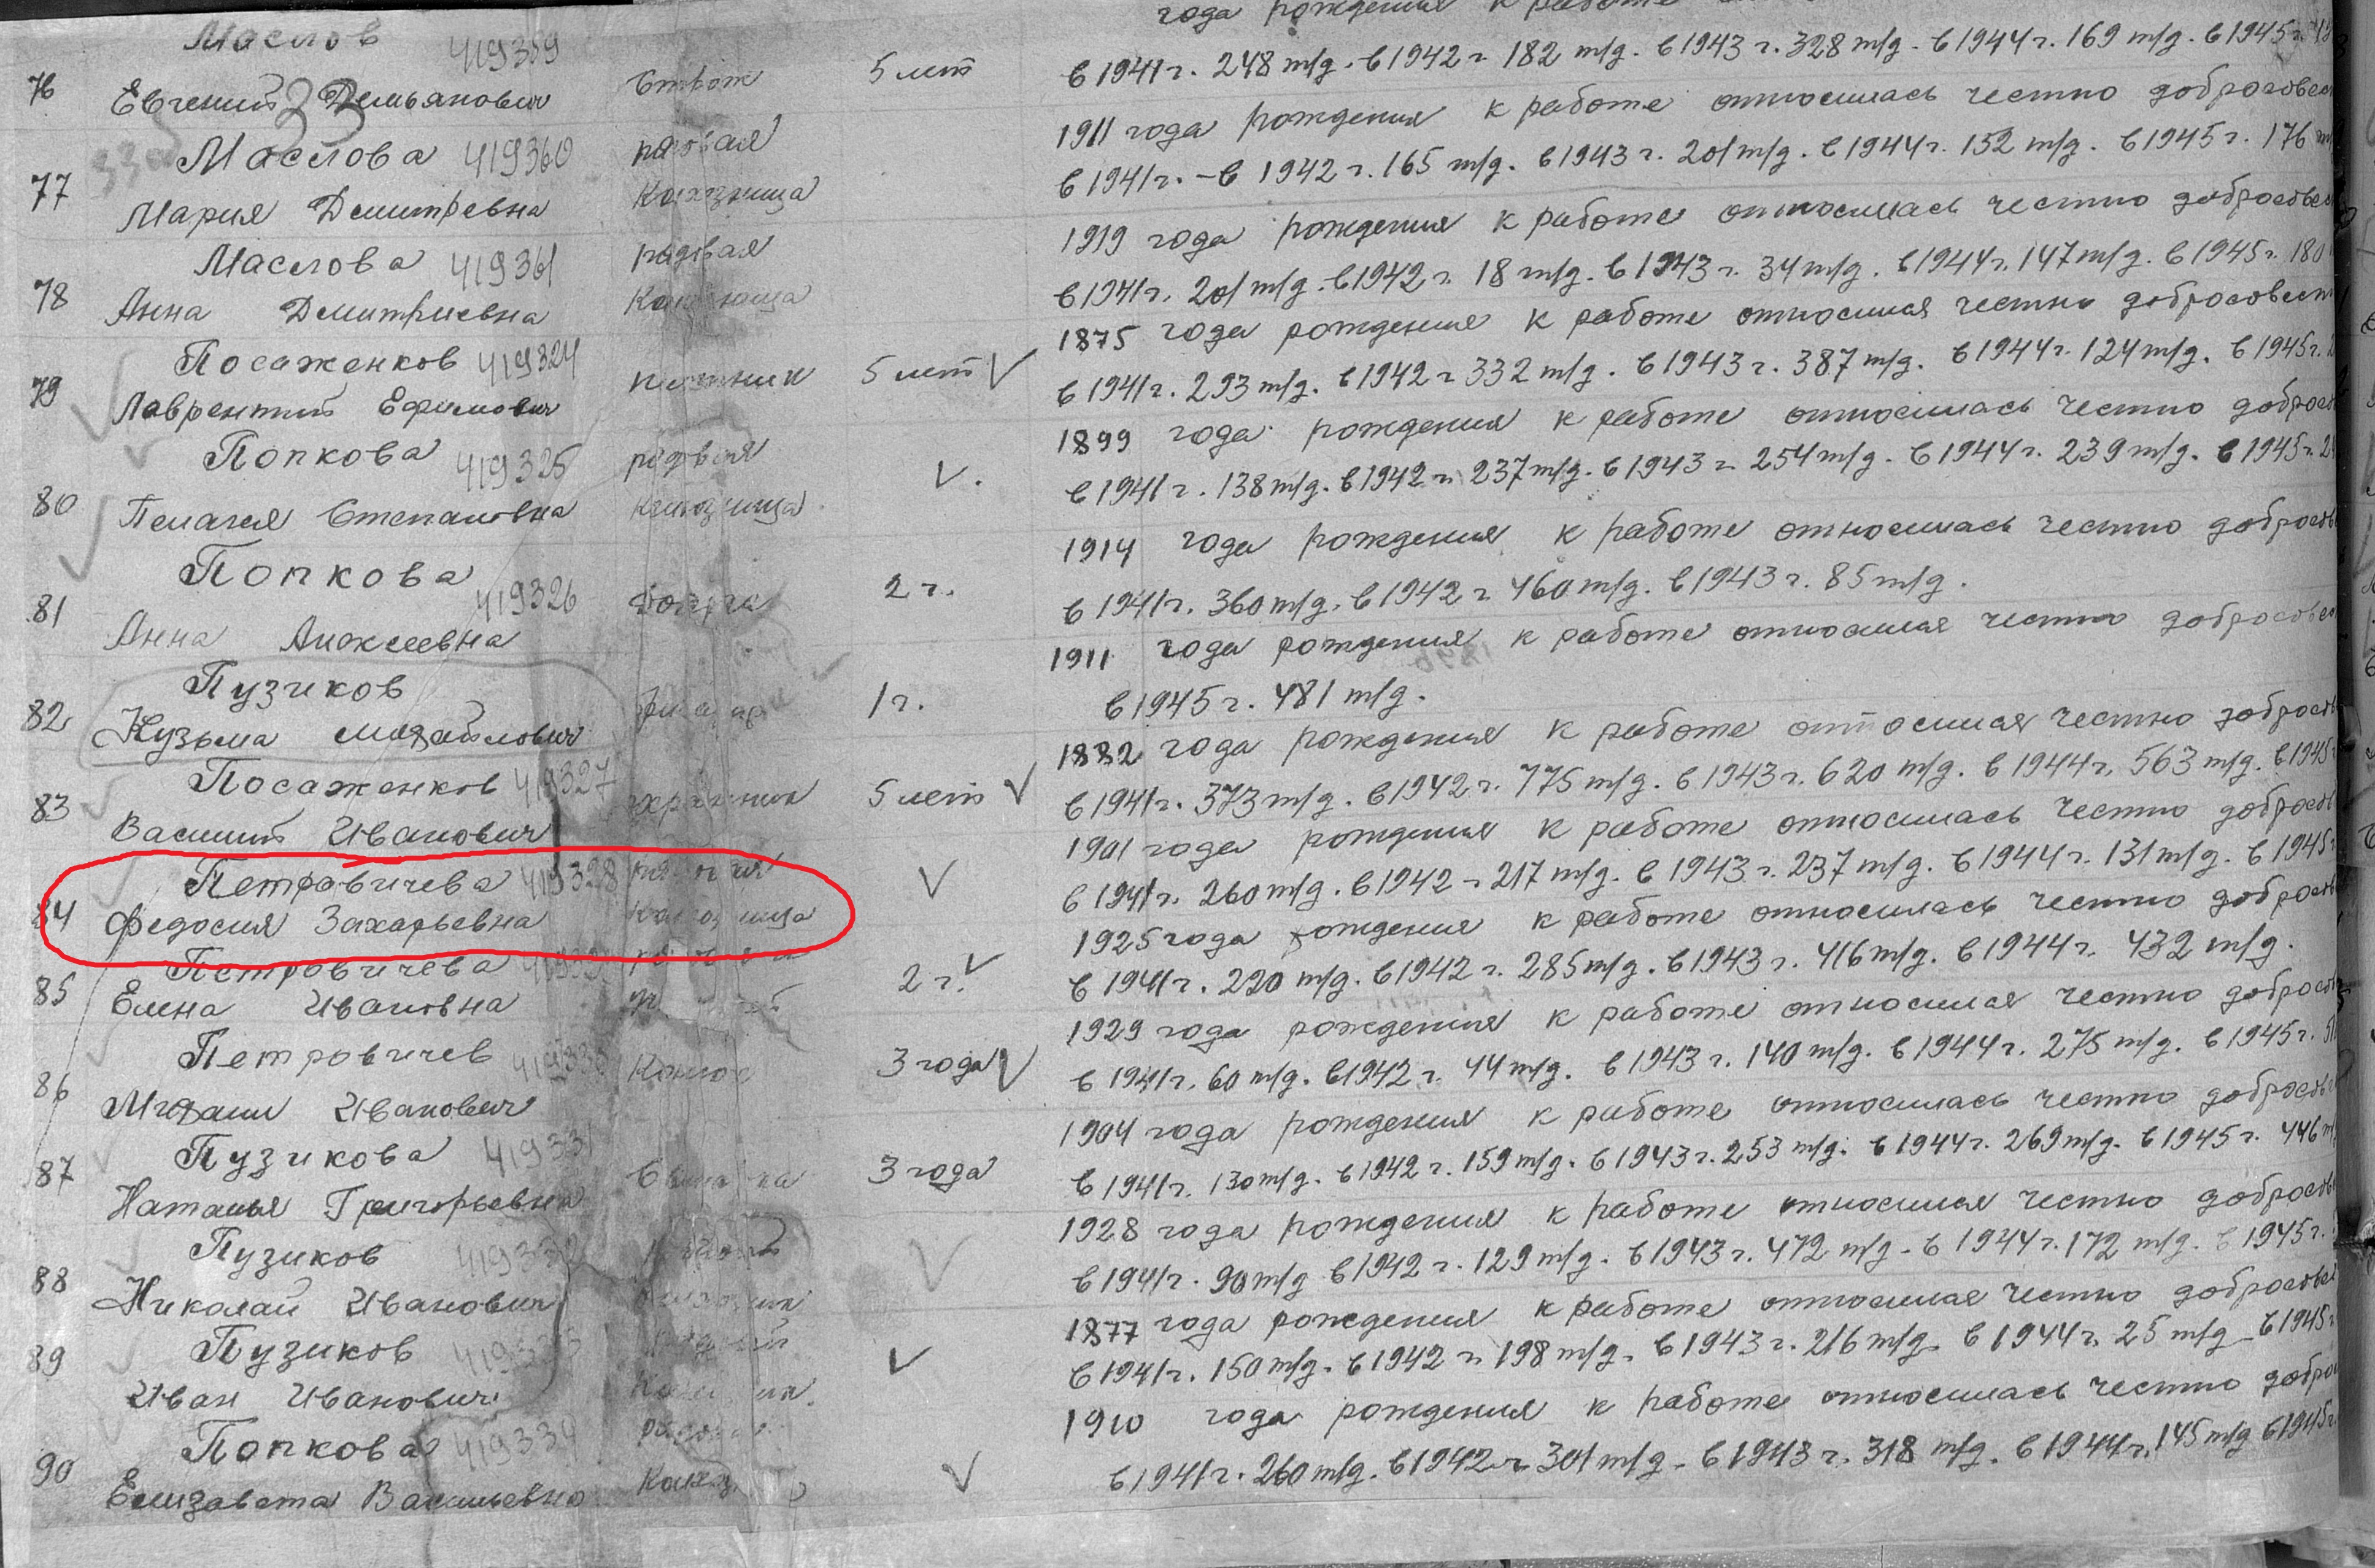 года рождения к работе
Маслов 419359
76 Евгений Демьянович Сторож 5 лет в 1941 г. 248 т/д. в 1942 г. 182 т/д. в 1943 г. 328 т/д. в 1944 г. 169 т/д. в 1945 г.
33
1911 года рождения к работе относилась честно добросовес
Маслова 419360 рядовая
77 Мария Дмитревна Колхозница в 1941 г. - в 1942 г. 165 т/д. в 1943 г. 201 т/д. в 1944 г. 152 т/д. в 1945 г. 176 т/
1919 года рождения к работе относилась честно добросовес
Маслова 419361 рядовая
78 Анна Дмитриевна Колхозница в 1941 г. 201 т/д. в 1942 г. 18 т/д. в 1943 г. 34 т/д. в 1944 г. 147 т/д. в 1945 г. 180
1875 года рождения к работе относился честно добросовест
Посаженков 419324
79 Лаврентий Ефимович 5 лет в 1941 г. 293 т/д. в 1942 г 332 т/д. в 1943 г. 387 т/д. в 1944 г. 124 т/д. в 1945 г.
1899 года рождения к работе относилась честно добросо
Попкова 419325 рядовая
80 Пелагея Степановна Колхозница в 1941 г. 138 т/д. в 1942 г. 237 т/д. в 1943 г. 254 т/д. в 1944 г. 239 т/д. в 1945 г. 2
1914 года рождения к работе относилась честно добросов
Попкова 419326
81 Анна Алексеевна 2 г. в 1941 г. 360 т/д. в 1942 г. 460 т/д. в 1943 г. 85 т/д.
1911 года рождения к работе относился честно добросове
Пузиков
82 Кузьма Михайлович 1 г. в 1945 г. 481 т/д.
1882 года рождения к работе относился честно добросов
Посаженков 419327
83 Василий Иванович 5 лет в 1941 г. 373 т/д. в 1942 г. 775 т/д. в 1943 г. 620 т/д. в 1944 г. 563 т/д. в 1945
1901 года рождения к работе относилась честно добросов
Петровичева 419328 рядовая
84 Федосия Захарьевна Колхозница в 1941 г. 260 т/д. в 1942 г 217 т/д. в 1943 г. 237 т/д. в 1944 г. 131 т/д. в 1945
1925 года рождения к работе относилась честно добросов
Петровичева
85 Елена Ивановна 2 г. в 1941 г. 220 т/д. в 1942 г. 285 т/д. в 1943 г. 416 т/д. в 1944 г. 432 т/д.
1929 года рождения к работе относился честно добросов
Петровичев 419330
86 Михаил Иванович Конюх 3 года в 1941 г. 60 т/д. в 1942 г. 44 т/д. в 1943 г. 140 т/д. в 1944 г. 275 т/д. в 1945 г.
1904 года рождения к работе относилась честно добросов
Пузикова 419331
87 Наталья Григорьевна 3 года в 1941 г. 130 т/д. в 1942 г. 159 т/д. в 1943 г. 253 т/д. в 1944 г. 269 т/д. в 1945 г. 446 т
1928 года рождения к работе относился честно добросов
Пузиков 419332
88 Николай Иванович в 1941 г. 90 т/д в 1942 г. 129 т/д. в 1943 г. 472 т/д. в 1944 г. 172 т/д. в 1945 г.
1877 года рождения к работе относился честно добросовес
Пузиков рядовой
89 Иван Иванович в 1941 г. 150 т/д. в 1942 г. 198 т/д. в 1943 г. 216 т/д. в 1944 г. 25 т/д в 1945
1910 года рождения к работе относилась честно добро
Попкова 419334
90 Елизавета Васильевна в 1941 г. 260 т/д. в 1942 г 301 т/д. в 1943 г. 318 т/д. в 1944 г. 145 т/д в 1945 г